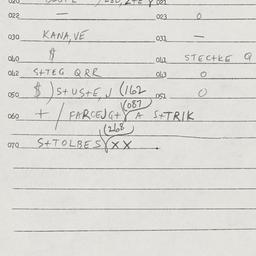 022 — 023 0
030 KANA,VE 031 —
040 $ 041 STECTKE Q
042 S+TEG QRR 043 0
050 $) S+US+E,J (162 051 0
(087)
060 +/ FARCEJG+ A S+TRIK
(268)
070 S+TOLBES XX .